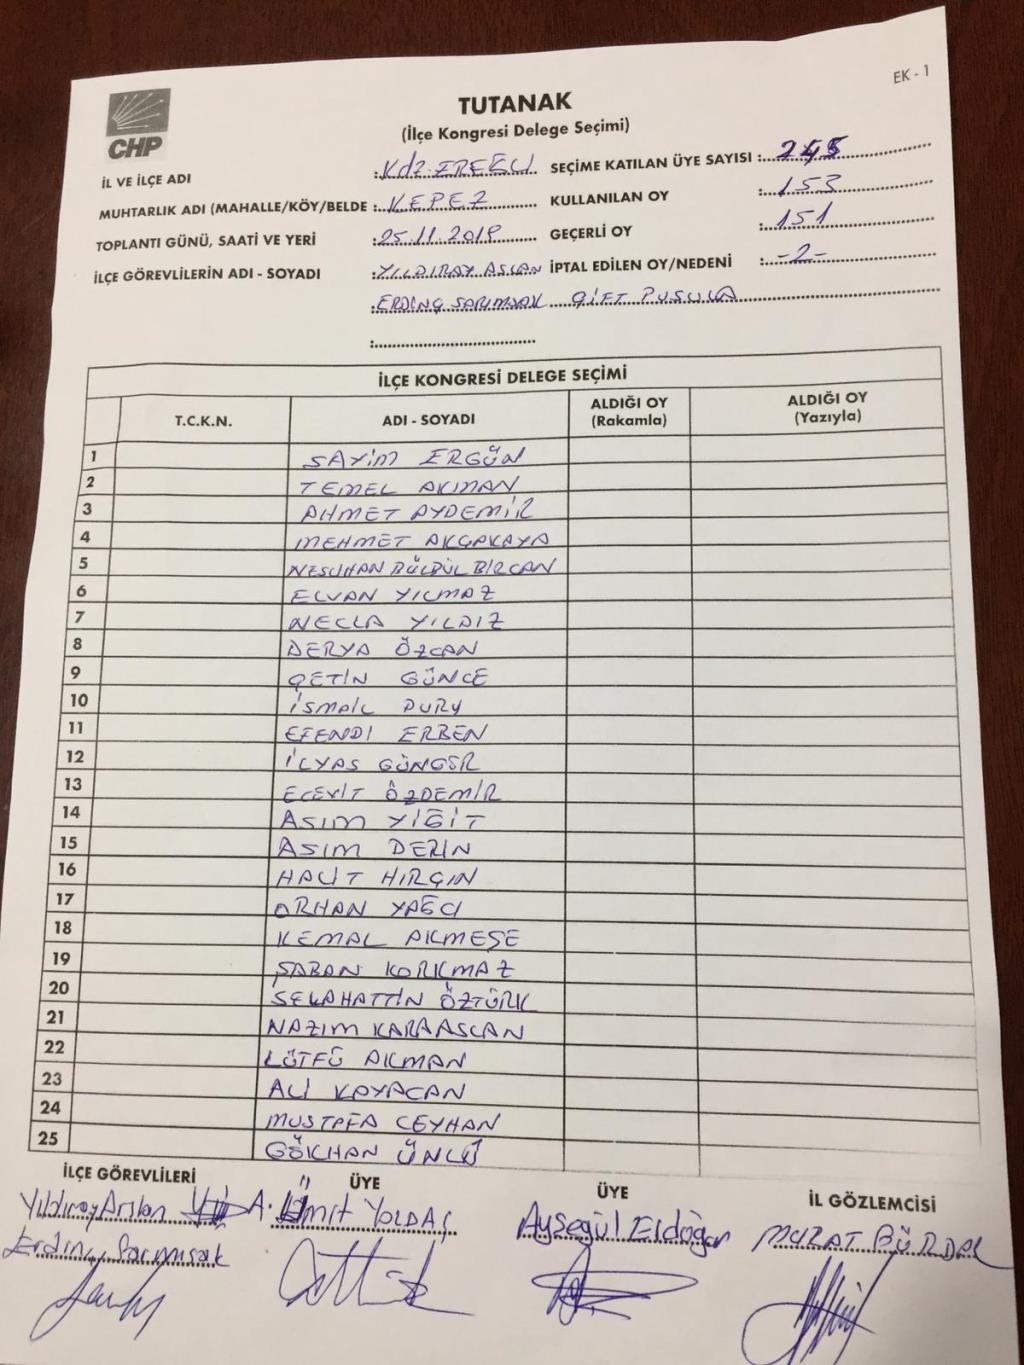 EK - 1
CHP
TUTANAK
(İlçe Kongresi Delege Seçimi)
İL VE İLÇE ADI : Kdz. EREĞLİ SEÇİME KATILAN ÜYE SAYISI : 245
MUHTARLIK ADI (MAHALLE/KÖY/BELDE : KEPEZ KULLANILAN OY : 153
TOPLANTI GÜNÜ, SAATİ VE YERİ : 25.11.2019 GEÇERLİ OY : 151
İLÇE GÖREVLİLERİN ADI - SOYADI : YILDIRAY ASLAN İPTAL EDİLEN OY/NEDENİ : -2-
: ERDİNÇ SARIMSAK ÇİFT PUSULA
İLÇE KONGRESİ DELEGE SEÇİMİ
T.C.K.N. ADI - SOYADI ALDIĞI OY (Rakamla) ALDIĞI OY (Yazıyla)
1 SAYİM ERGÜN
2 TEMEL AKMAN
3 AHMET AYDEMİR
4 MEHMET AKÇAKAYA
5 NESLİHAN BÜLBÜL BİRCAN
6 ELVAN YILMAZ
7 NECLA YILDIZ
8 DERYA ÖZCAN
9 ÇETİN GÜNCE
10 İSMAİL DURU
11 EFENDİ ERBEN
12 İLYAS GÜNGÖR
13 ECEVİT ÖZDEMİR
14 ASIM YİĞİT
15 ASIM DERİN
16 HALİT HIRÇIN
17 ORHAN YAĞCI
18 KEMAL AKMEŞE
19 ŞABAN KORKMAZ
20 SELAHATTİN ÖZTÜRK
21 NAZIM KARAASLAN
22 LÜTFÜ AKMAN
23 ALİ KAYACAN
24 MUSTAFA CEYHAN
25 GÖKHAN ÜNLÜ
İLÇE GÖREVLİLERİ ÜYE ÜYE İL GÖZLEMCİSİ
Yıldıray Arslan A. Ümit YOLDAŞ Ayşegül Erdoğan MURAT BÜRDAL
Erdinç Sarımsak